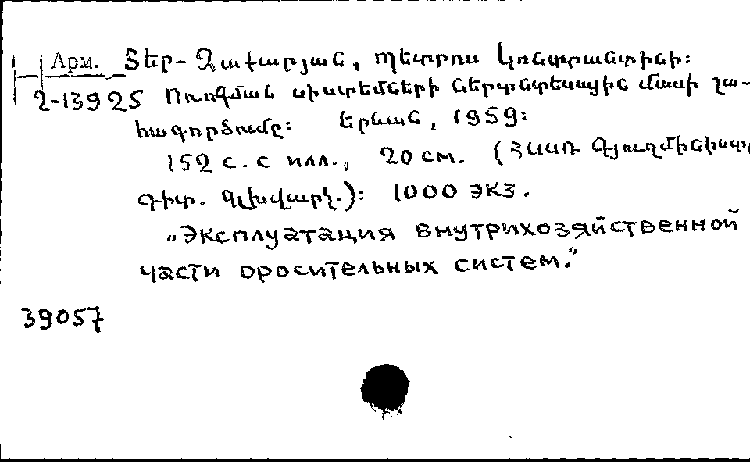 Арм. Տեր-Զաքարյան, Պետրոս Կոնստանտինի:
2-13925 Ոռոգման սիստեմների ներտնտեսային մասի շա-
հագործումը: Երևան, 1959:
152 с. с илл., 20 см. (ՀՍՍՌ Գյուղմինիստ
գիտ. գլխվարչ.): 1000 экз.
„Эксплуатация внутрихозяйственной
части оросительных систем."
39057